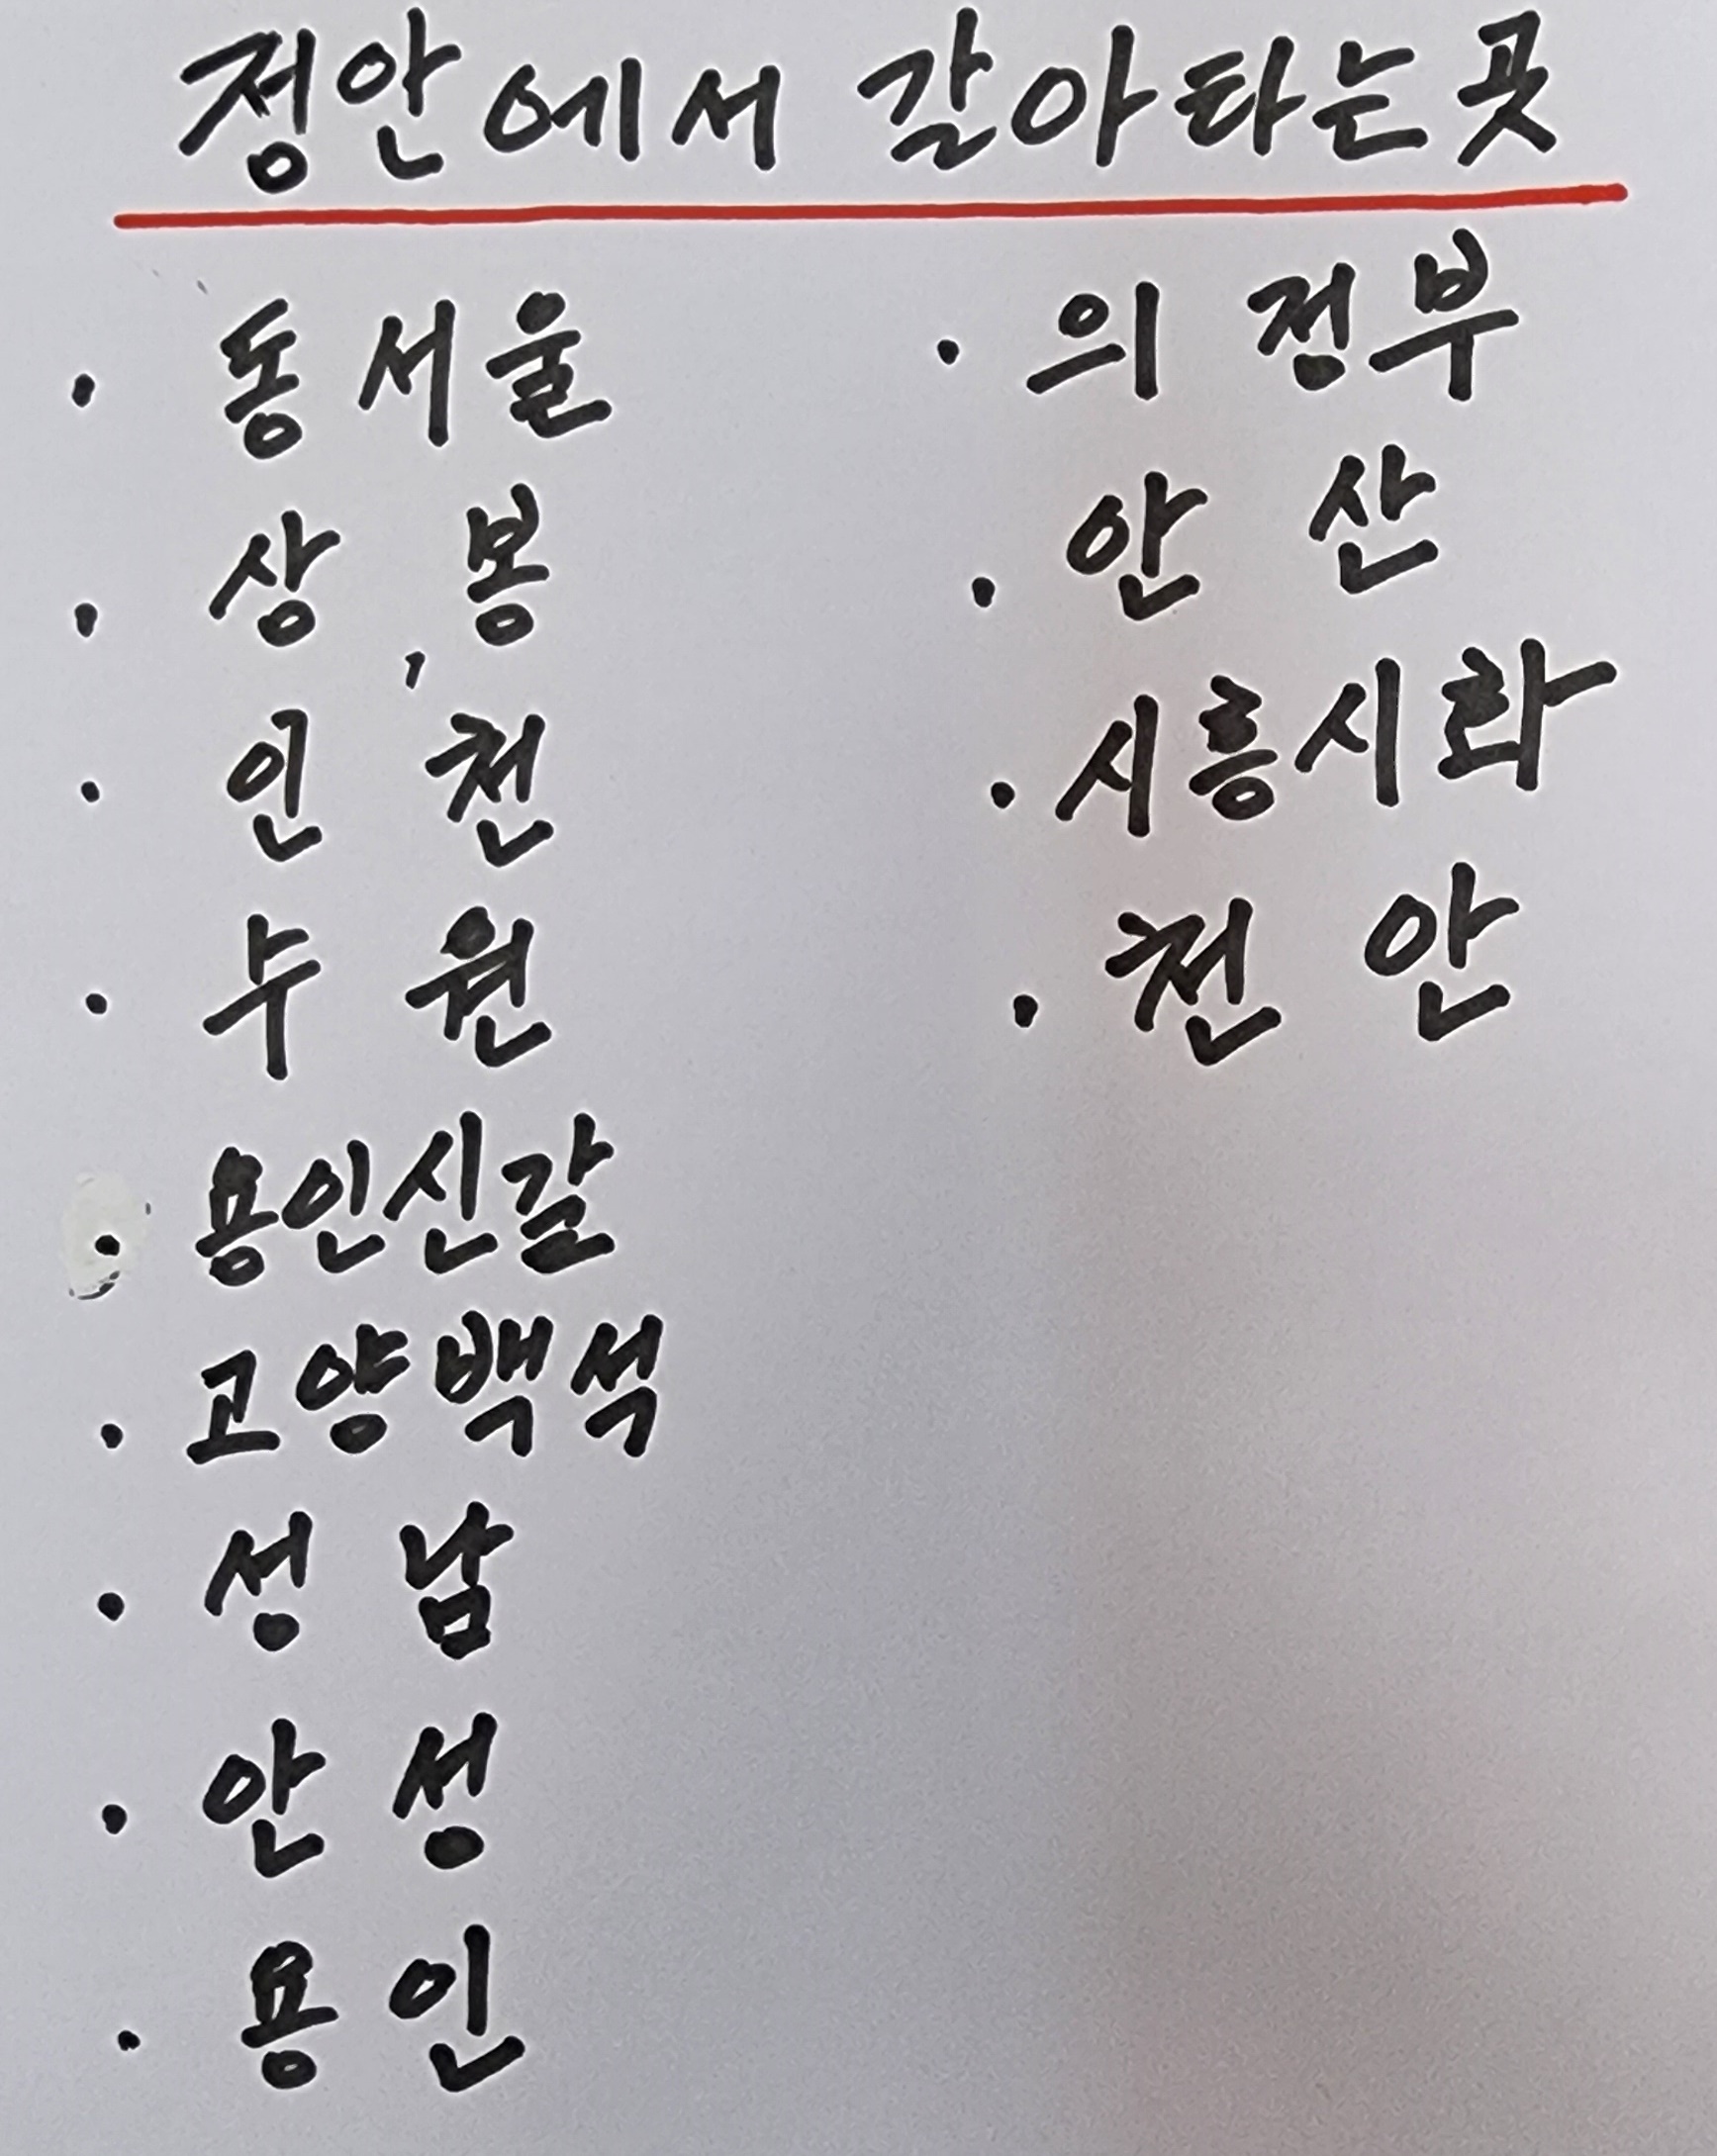 정안에서 갈아타는곳
· 동서울
· 상봉
· 인천
· 수원
· 용인신갈
· 고양백석
· 성남
· 안성
· 용인
· 의정부
· 안산
· 시흥시화
· 천안